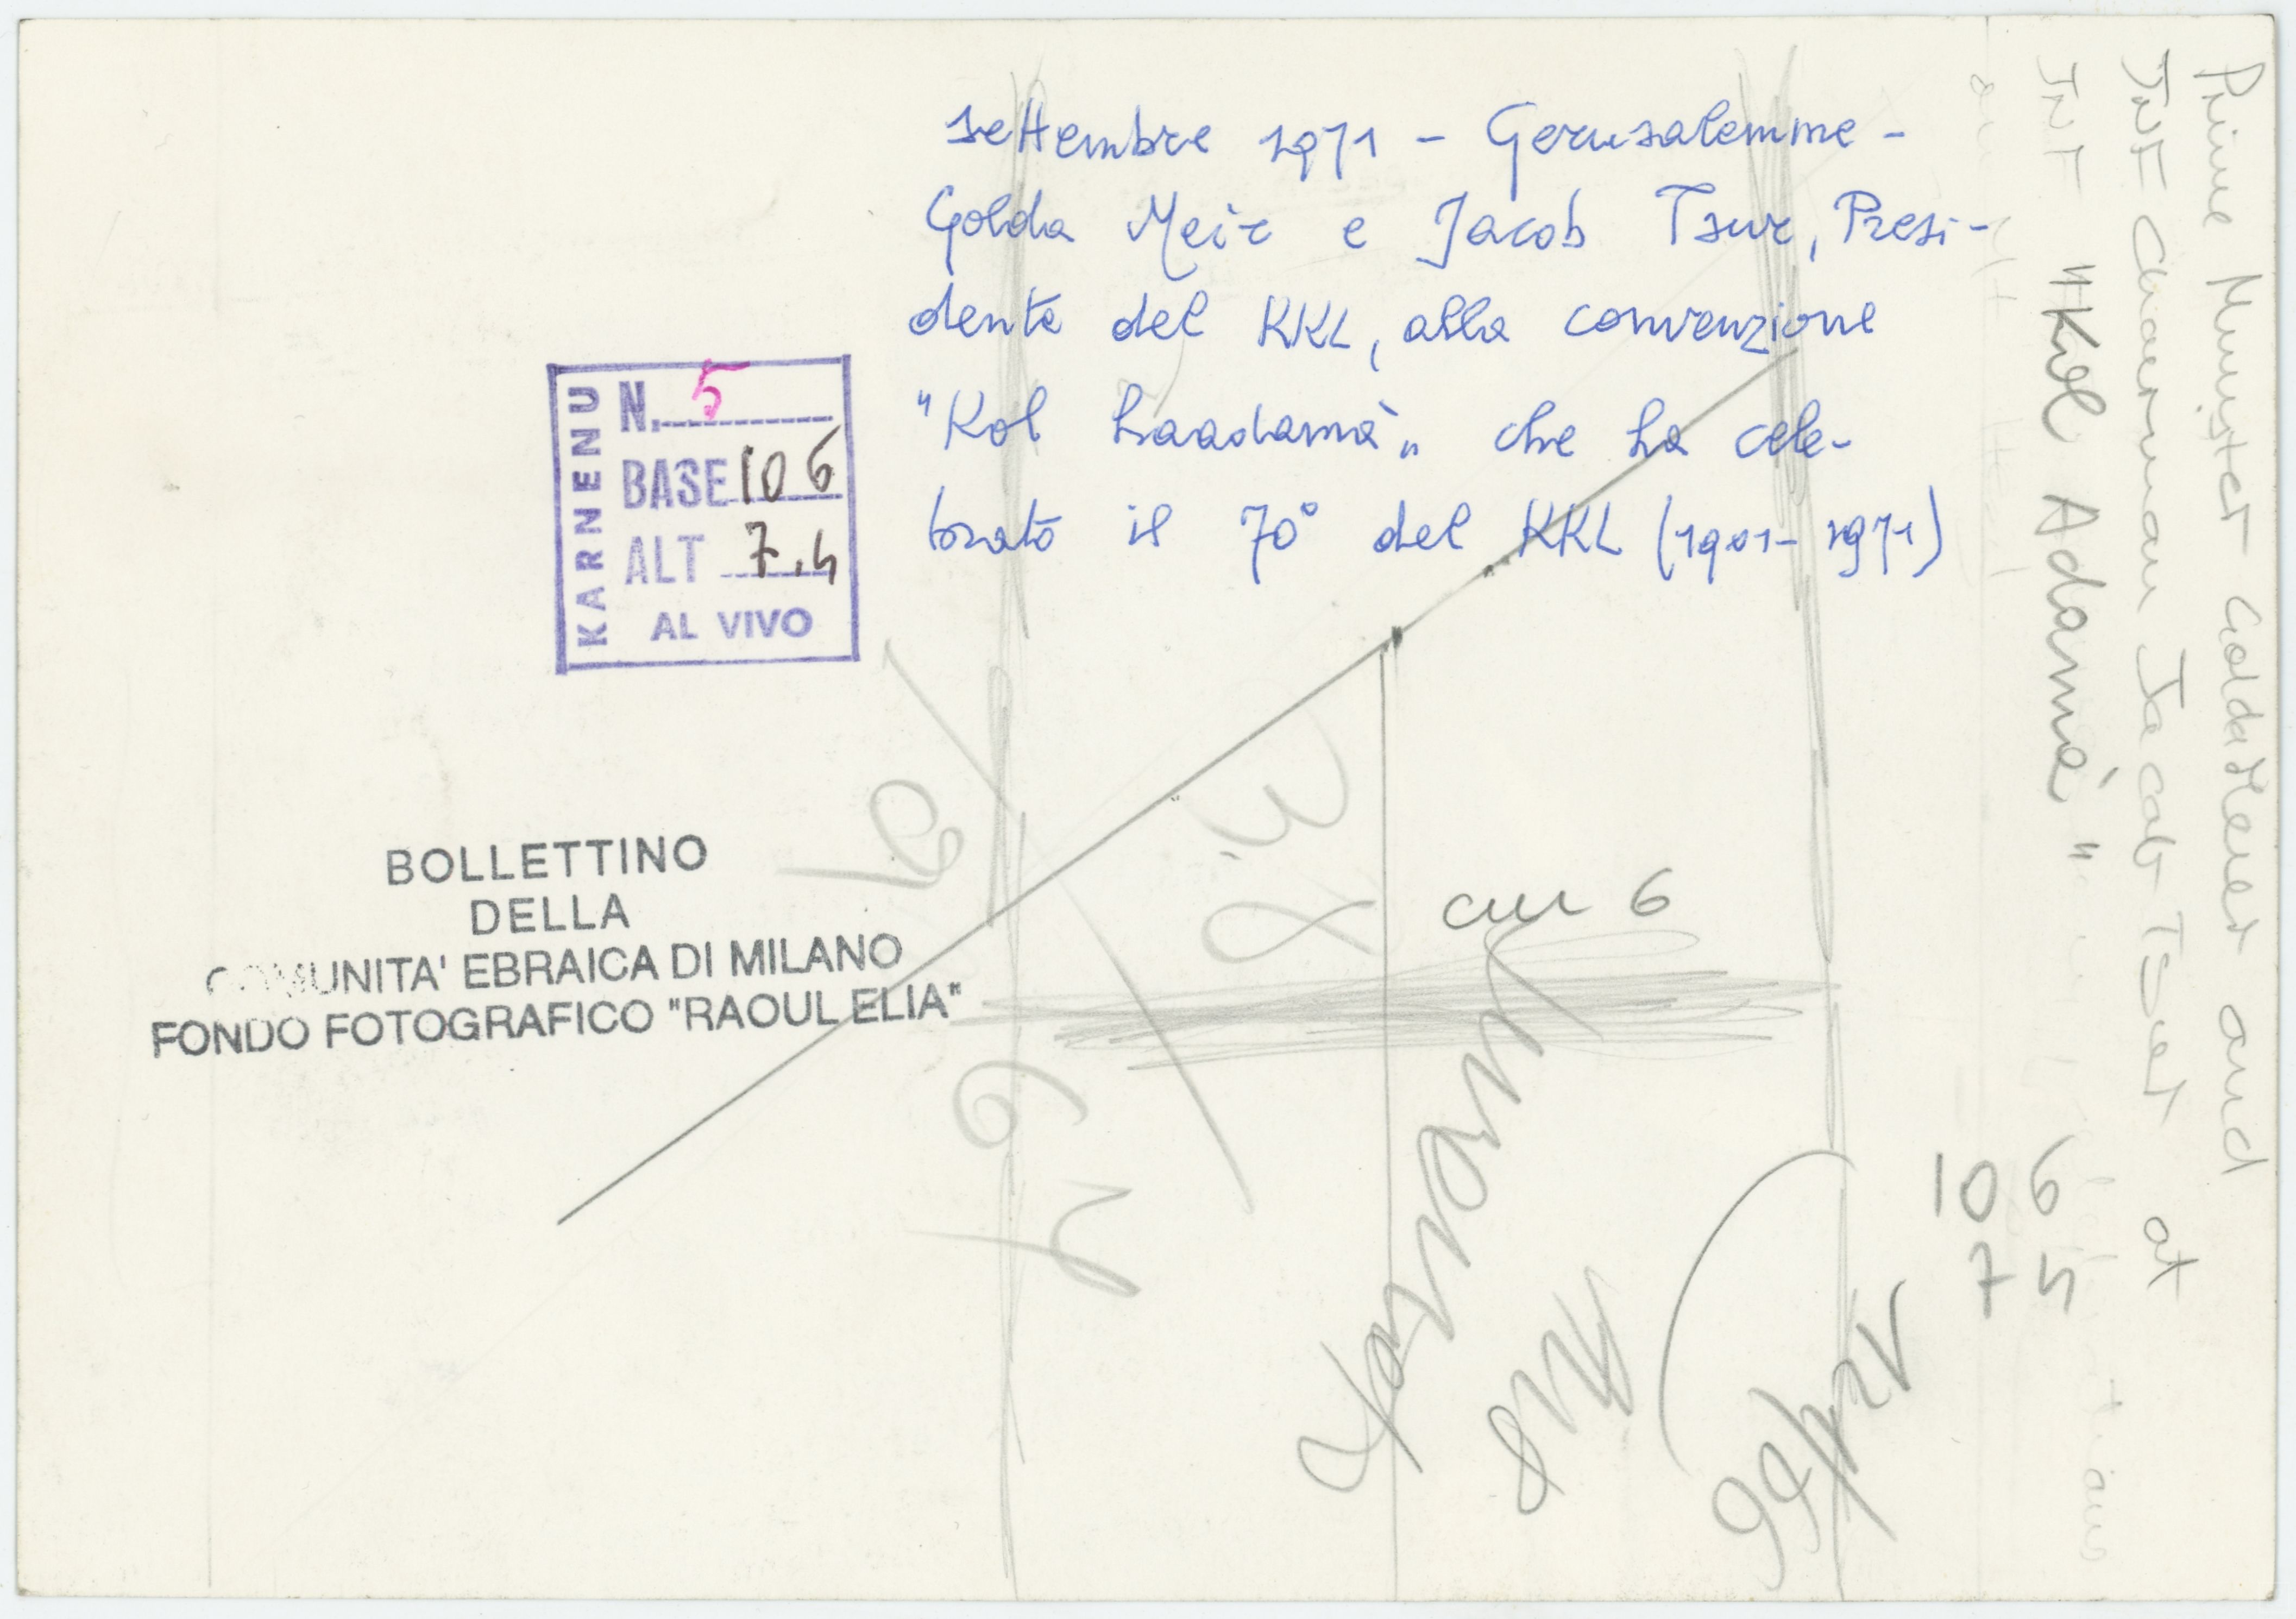 settembre 1971 - Gerusalemme -
Golda Meir e Jacob Tsur, Presi-
dente del KKL, alla convenzione
"Kol haadamà" che ha cele-
brato il 70° del KKL (1901-1971)
KARNENU
N. 5
BASE 106
ALT 7.4
AL VIVO
BOLLETTINO
DELLA
COMUNITA' EBRAICA DI MILANO
FONDO FOTOGRAFICO "RAOUL ELIA"
Prime Minister Golda Meier and
JNF Chairman Jacob Tsur at
JNF "Kol Adamà"
cm 6
10 6
7 4